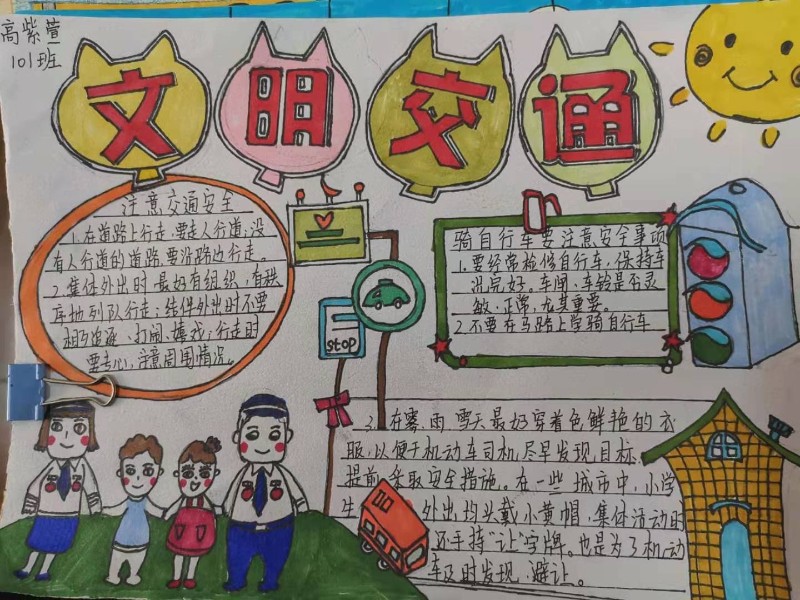 高紫萱
101班
文明交通
注意交通安全
1.在道路上行走,要走人行道;没
有人行道的道路,要沿路边行走。
2.集体外出时,最好有组织,有秩
序地列队行走;结伴外出时,不要
相互追逐、打闹、嬉戏;行走时
要专心,注意周围情况。
stop
骑自行车要注意安全事项
1.要经常检修自行车,保持车
况完好。车闸、车铃是否灵
敏、正常,尤其重要。
2.不要在马路上学骑自行车
3.在雾、雨、雪天最好穿着色鲜艳的衣
服,以便于机动车司机尽早发现目标,
提前采取安全措施。在一些城市中,小学
生 外出均头戴小黄帽,集体活动时
还手持“让”字牌。也是为了机动
车及时发现、避让。